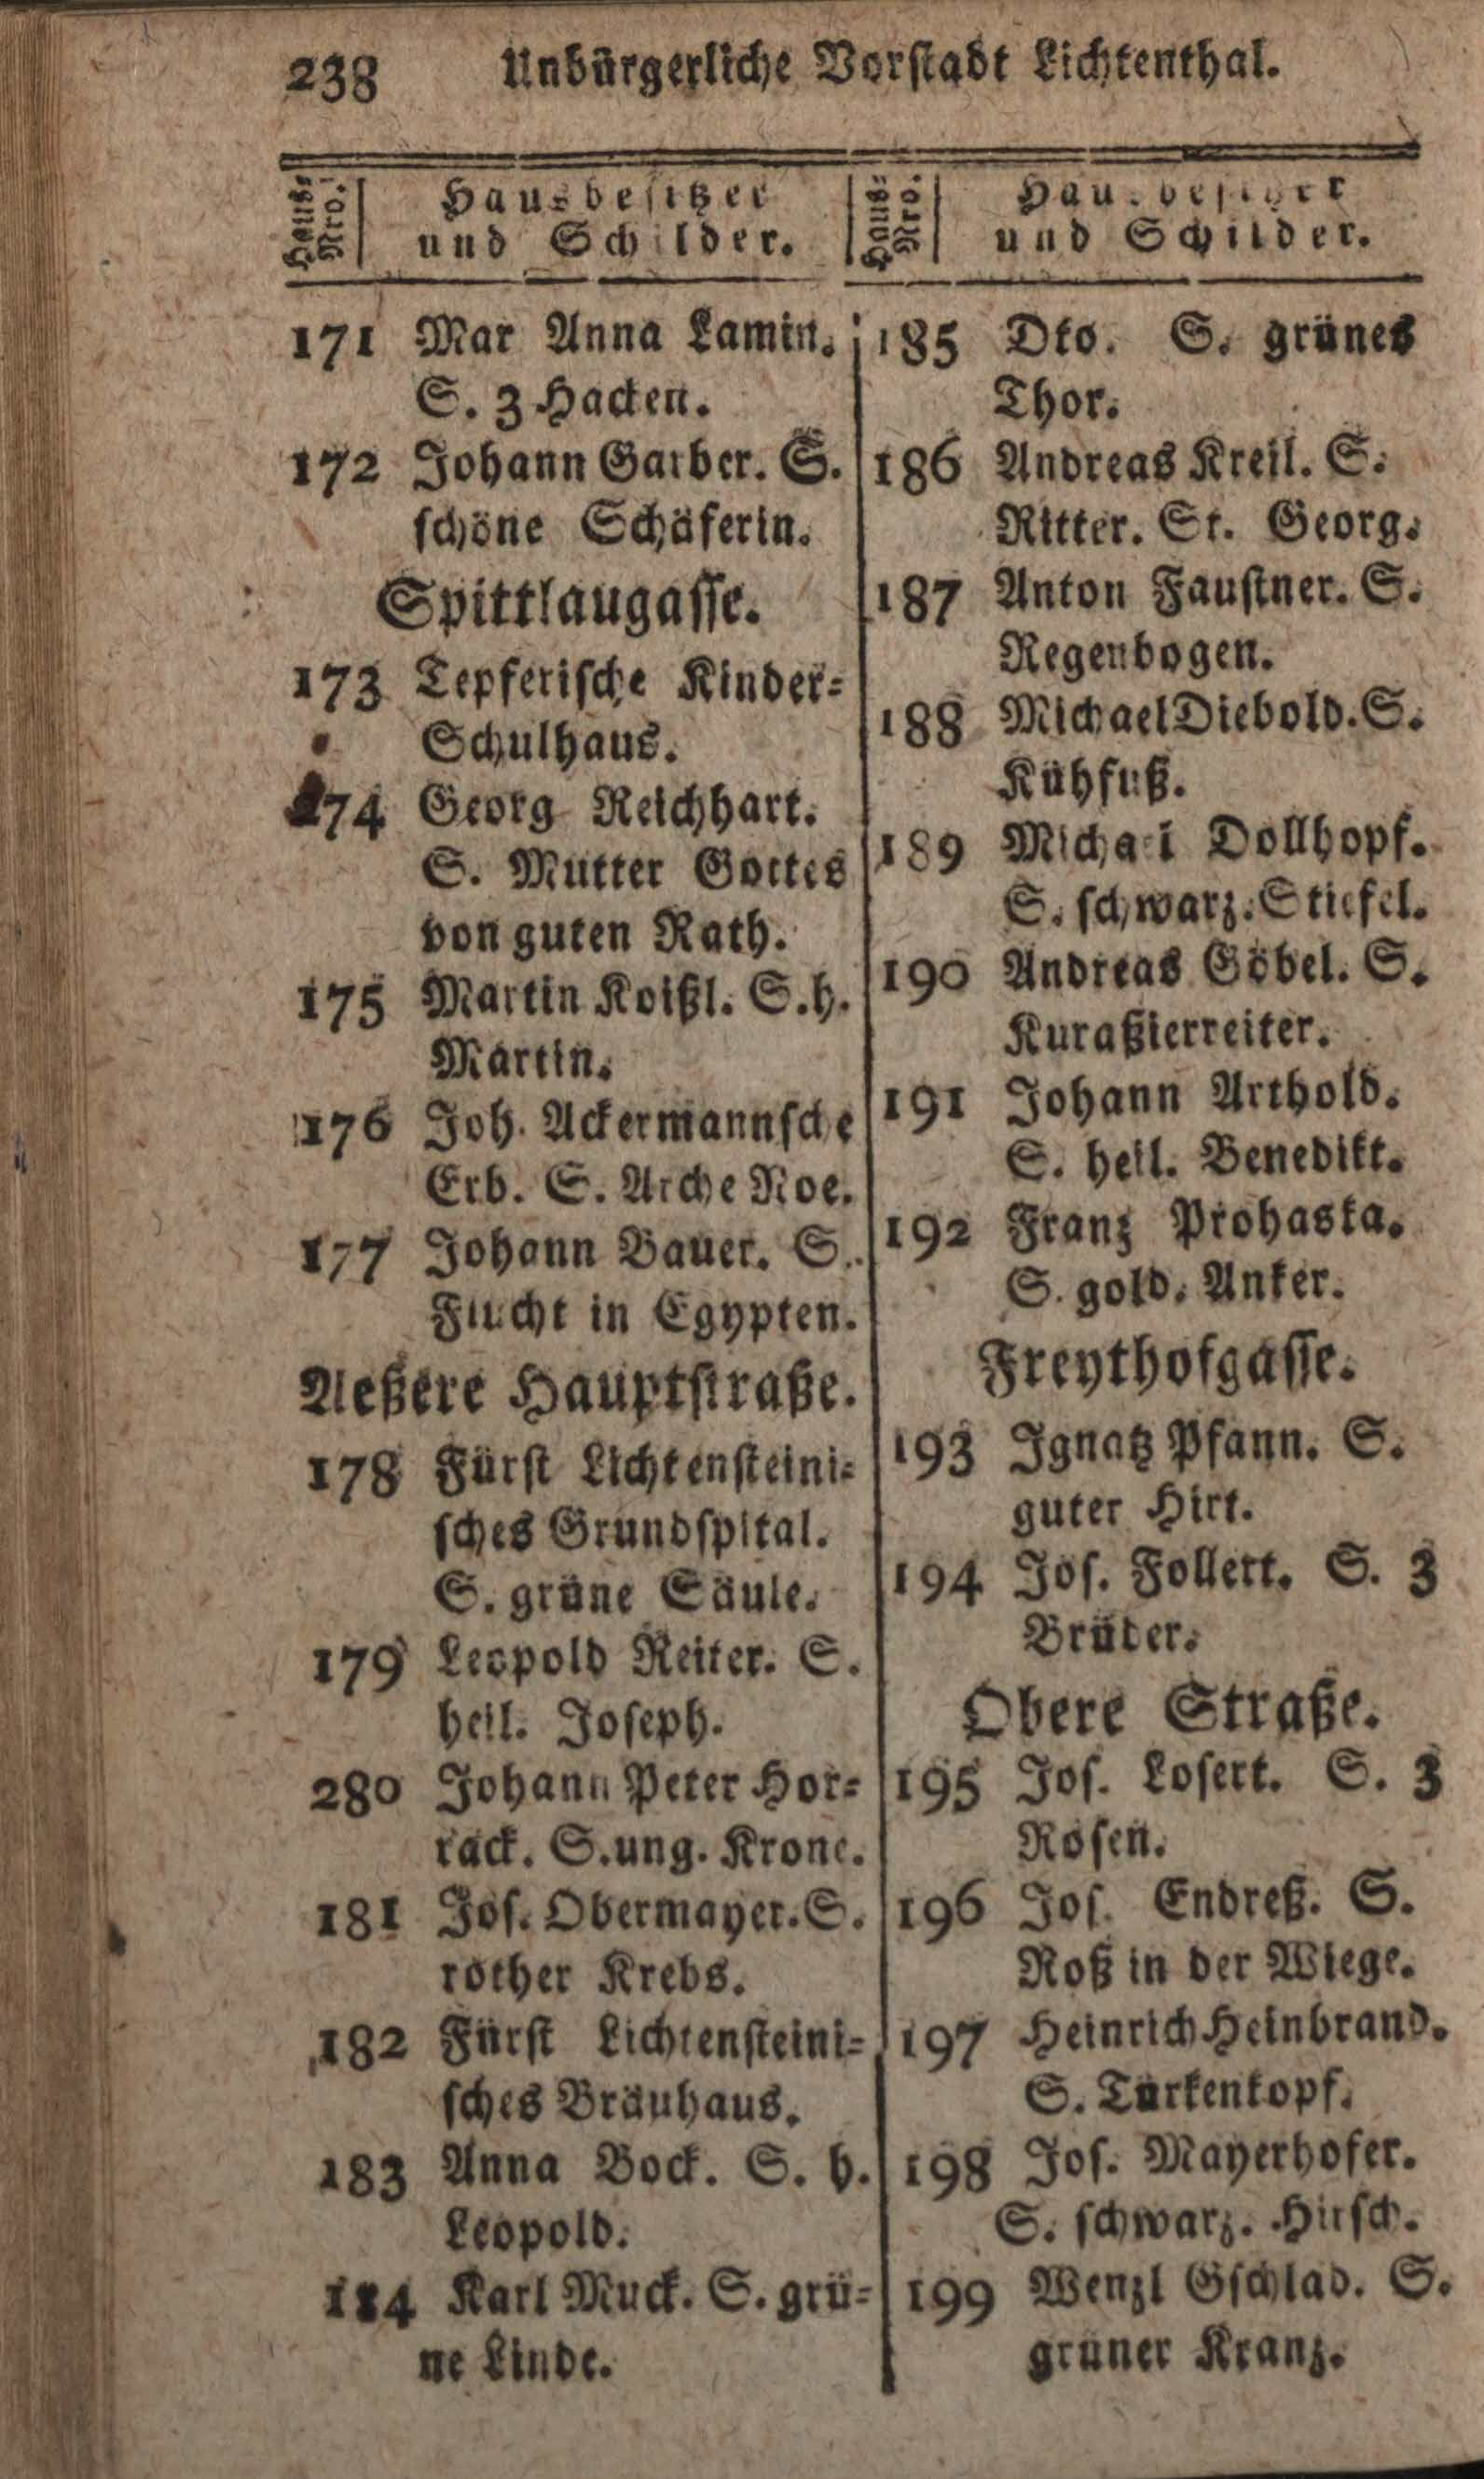 238 Unbürgerliche Vorstadt Lichtenthal.
Haus-
Nro.
Hausbesitzer
und Schilder.
171 Mar Anna Lamin.
S. 3 Hacken.
172 Johann Garber. S.
schöne Schäferin.
Spittlaugasse.
173 Tepferische Kinder-
Schulhaus.
174 Georg Reichhart.
S. Mutter Gottes
von guten Rath.
175 Martin Koißl. S. h.
Martin.
176 Joh. Ackermannsche
Erb. S. Arche Noe.
177 Johann Bauer. S.
Flucht in Egypten.
Aeßere Hauptstraße.
178 Fürst Lichtensteini-
sches Grundspital.
S. grüne Säule.
179 Leopold Reiter. S.
heil. Joseph.
280 Johann Peter Hor-
rack. S. ung. Krone.
181 Jos. Obermayer. S.
rother Krebs.
182 Fürst Lichtensteini-
sches Bräuhaus.
183 Anna Bock. S. h.
Leopold.
184 Karl Muck. S. grü-
ne Linde.
Haus-
Nro.
Hausbesitzer
und Schilder.
185 Dto. S. grünes
Thor.
186 Andreas Kreil. S.
Ritter. St. Georg.
187 Anton Faustner. S.
Regenbogen.
188 Michael Diebold. S.
Kühfuß.
189 Michael Dollhopf.
S. schwarz. Stiefel.
190 Andreas Göbel. S.
Kuraßierreiter.
191 Johann Arthold.
S. heil. Benedikt.
192 Franz Prohaska.
S. gold. Anker.
Freythofgasse.
193 Ignatz Pfann. S.
guter Hirt.
194 Jos. Follert. S. 3
Brüder.
Obere Straße.
195 Jos. Losert. S. 3
Rosen.
196 Jos. Endreß. S.
Roß in der Wiege.
197 Heinrich Heinbrand.
S. Türkenkopf.
198 Jos. Mayerhofer.
S. schwarz. Hirsch.
199 Wenzl Gschlad. S.
grüner Kranz.